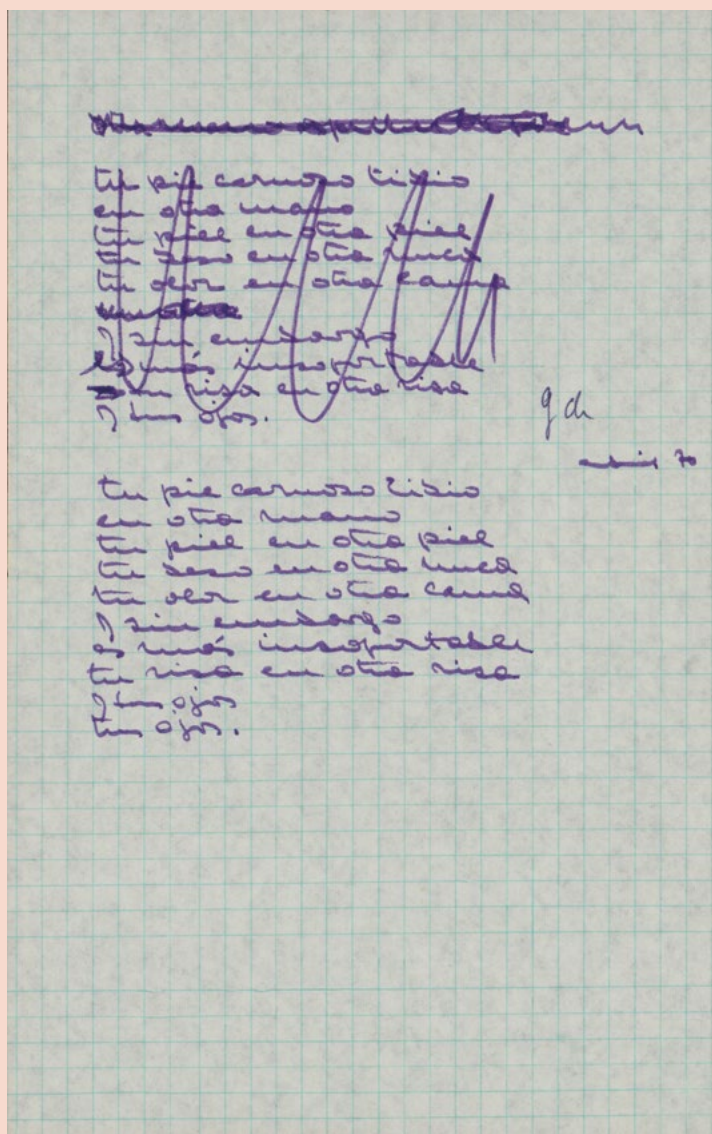 tu pie carnoso tibio
en otra mano
tu piel en otra piel
tu seso en otra nuca
tu olor en otra cama
y sin embargo
es más insoportable
tu risa en otra risa
y tus ojos.
tu pie carnoso tibio
en otra mano
tu piel en otra piel
tu seso en otra nuca
tu olor en otra cama
y sin embargo
es más insoportable
tu risa en otra risa
y tus ojos
tus ojos.
70